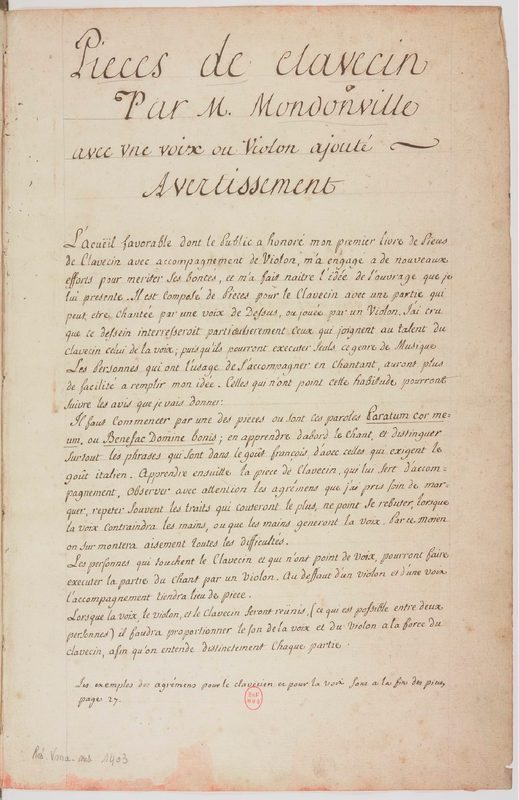 Pieces de clavecin
Par M. Mondonville
avec vne voix ou Violon ajouté
Avertissement
L'acueil favorable dont le Public a honoré mon premier livre de Pieces
de Clavecin avec accompagnement de Violon, m'a engagé a de nouveaux
efforts pour meriter ses bontés, et m'a fait naitre l'idée de l'ouvrage que je
lui presente. Il est composé de Pieces pour le Clavecin avec une partie qui
peut, etre chantée par une voix de Dessus, ou jouée par un Violon. J'ai cru
que ce dessein interresseroit particulierement ceux qui joignent au talent du
clavecin celui de la voix; puisqu'ils pourront executer seuls ce genre de Musique
Les Personnes qui ont l'usage de s'accompagner en chantant, auront plus
de facilité a remplir mon idée. Celles qui n'ont point cette habitude pourront
suivre les avis que je vais donner:
Il faut commencer par une des pieces ou sont ces paroles Paratum cor me-
um, ou Benefac Domine bonis; en apprendre d'abord le chant, et distinguer
surtout les phrases qui sont dans le goût françois, d'avec celles qui exigent le
goût italien. Apprendre ensuitte la piece de Clavecin, qui lui sert d'accom-
pagnement, observer avec attention les agrémens que j'ai pris soin de mar-
quer, repeter souvent les traits qui couteront le plus, ne point se rebuter, lorsque
la voix contraindra les mains, ou que les mains generont la voix. Par ce moien
on surmontera aisement toutes les difficultés.
Les personnes qui touchent le Clavecin et qui n'ont point de voix, pourront faire
executer la partie du chant par un Violon. Au deffaut d'un violon et d'une voix
l'accompagnement tiendra lieu de piece.
Lorsque la voix, le violon, et le Clavecin seront reünis, (ce qui est possible entre deux
personnes) il faudra proportionner le son de la voix et du Violon a la force du
clavecin, afin qu'on entende distinctement chaque partie.
Les exemples des agrémens pour le clavecien et pour la voix sont a la fin des pieces,
page 27.
Rés. Vma. ms 1403